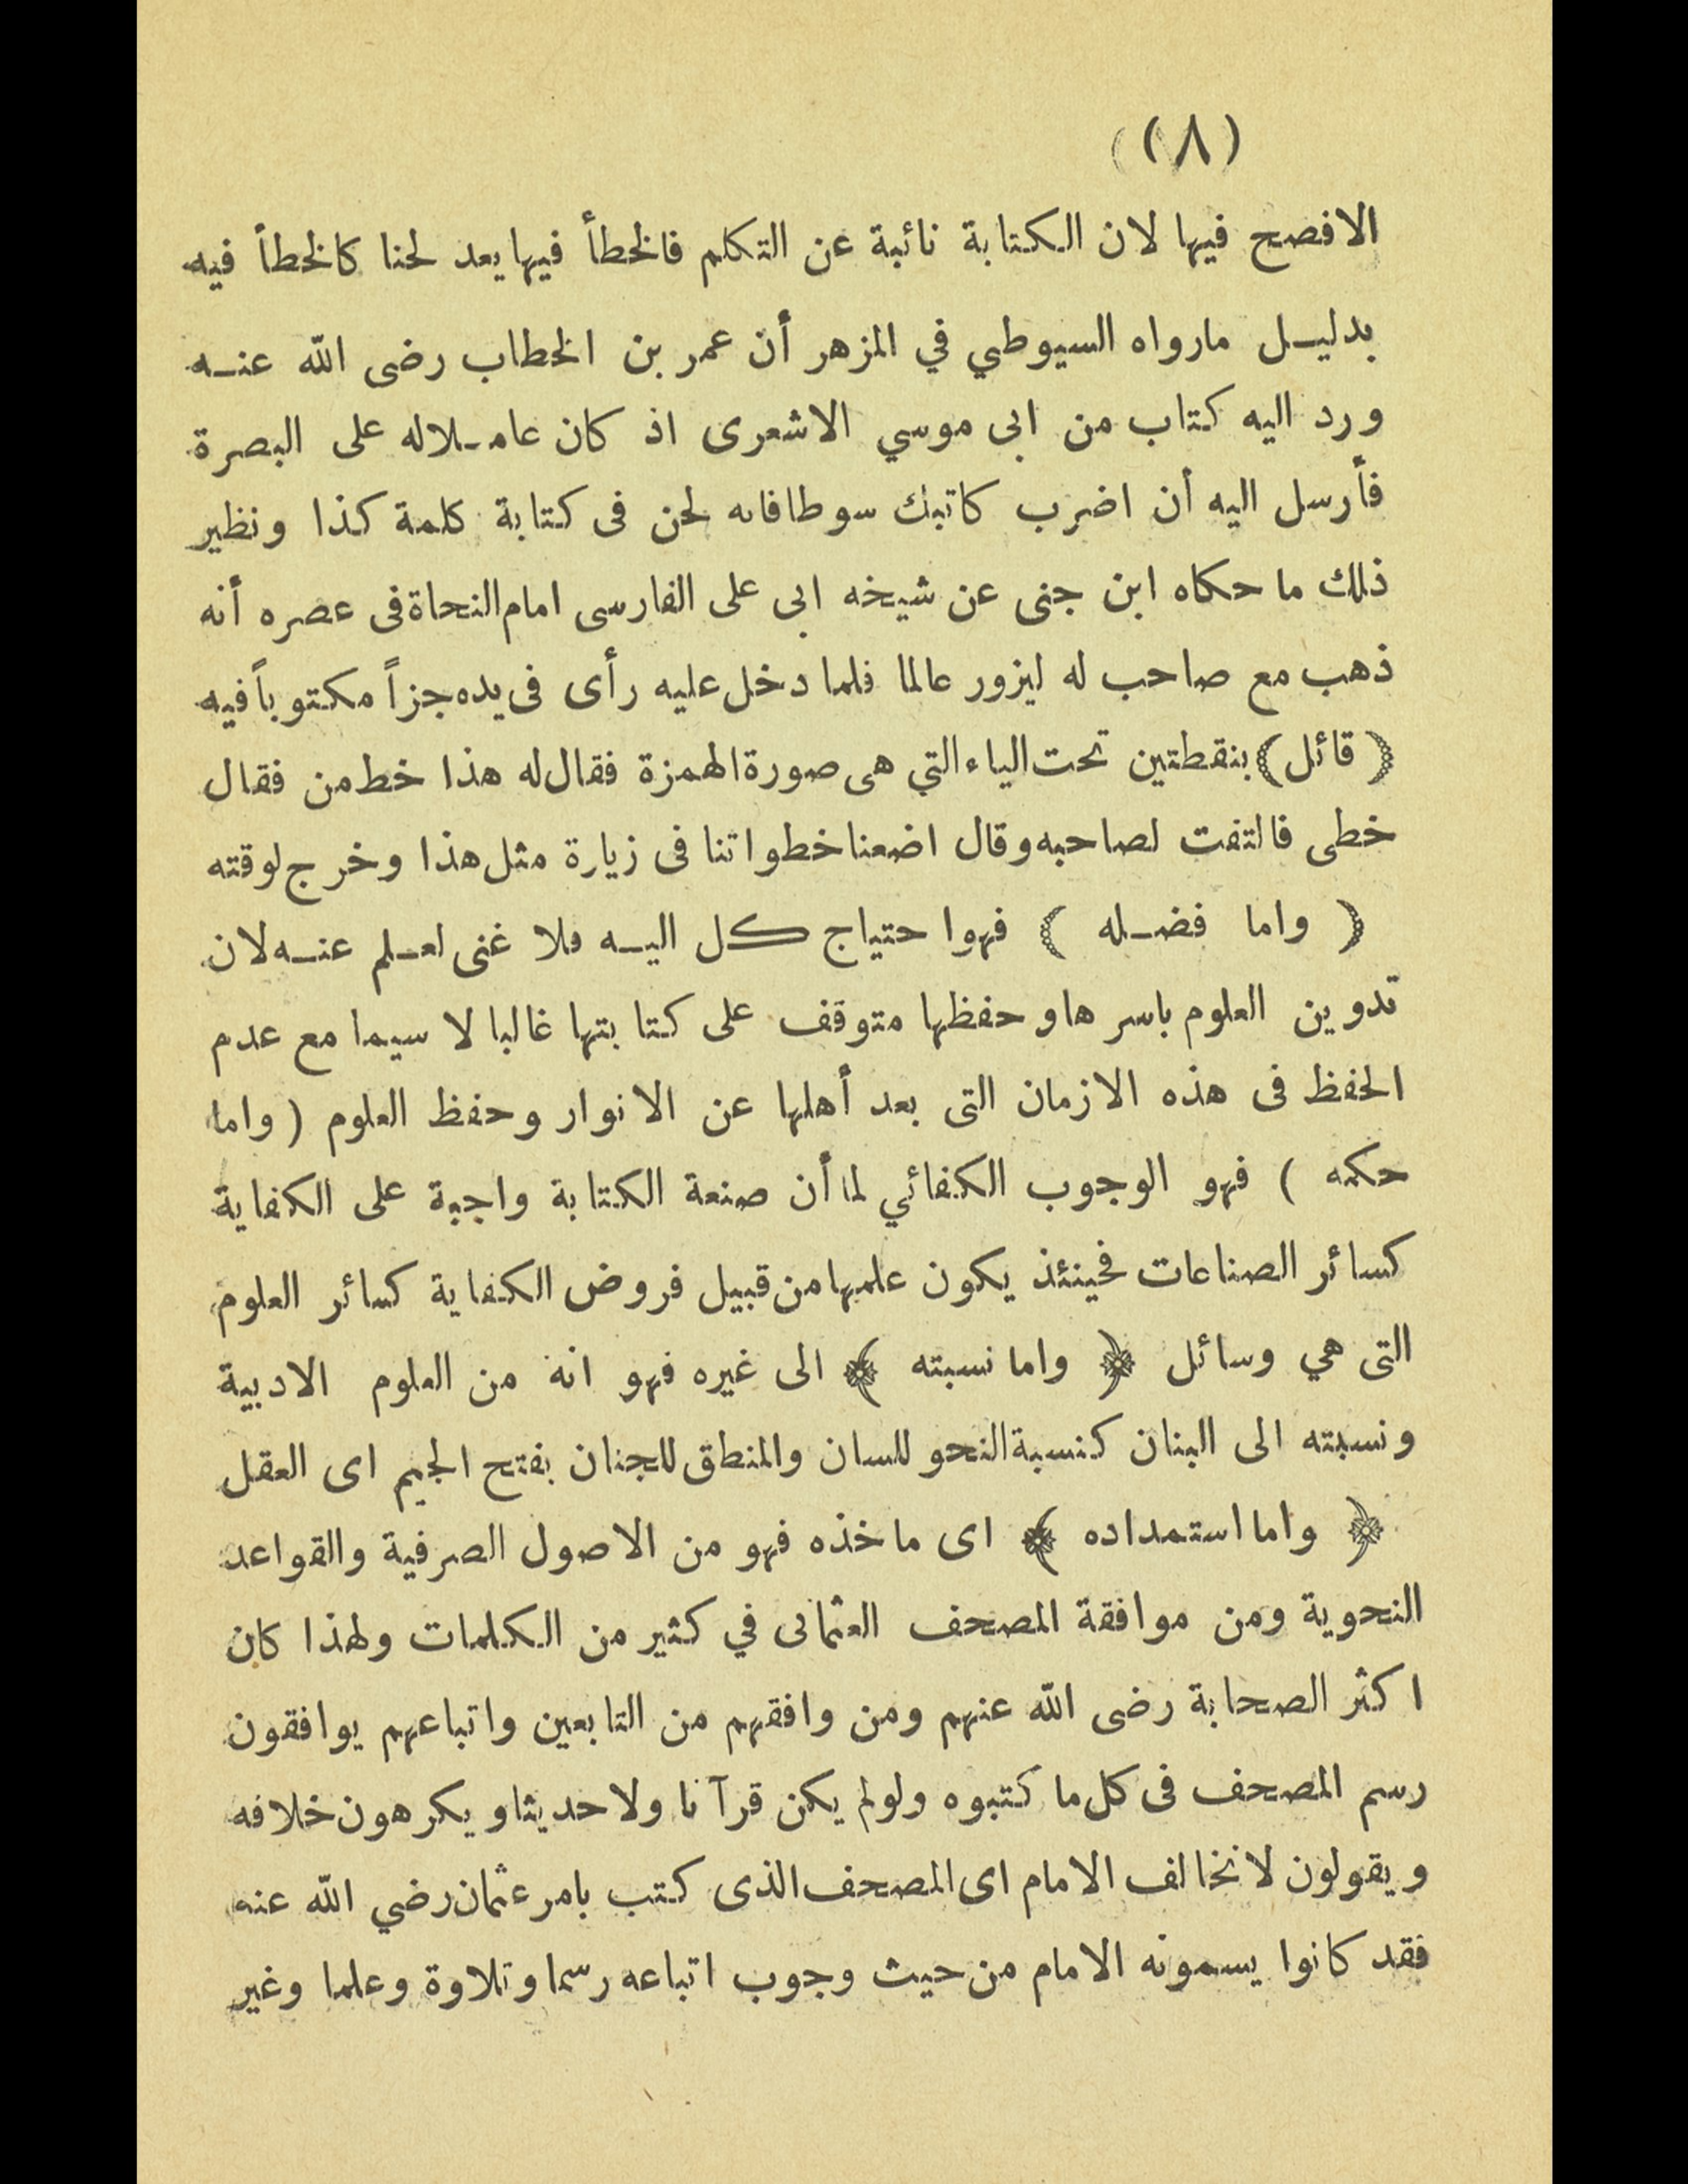 (٨)
الافصح فيها لان الكتابة نائبة عن التكلم فالخطأ فيها يعد لحنا كالخطأ فيه
بدليل مارواه السيوطي في المزهر أن عمر بن الخطاب رضى الله عنه
ورد اليه كتاب من ابى موسي الاشعرى اذ كان عاملا له على البصرة
فأرسل اليه أن اضرب كاتبك سوطا فانه لحن فى كتابة كلمة كذا ونظير
ذلك ما حكاه ابن جنى عن شيخه ابى على الفارسى امام النحاة فى عصره أنه
ذهب مع صاحب له ليزور عالما فلما دخل عليه رأى فى يده جزاً مكتوباً فيه
(قائل) بنقطتين تحت الياء التي هى صورة الهمزة فقال له هذا خط من فقال
خطى فالتفت لصاحبه وقال اضعنا خطواتنا فى زيارة مثل هذا وخرج لوقته
( واما فضله ) فهوا حتياج كل اليه فلا غنى لعلم عنه لان
تدوين العلوم باسرها وحفظها متوقف على كتابتها غالبا لا سيما مع عدم
الحفظ فى هذه الازمان التى بعد أهلها عن الانوار وحفظ العلوم ( واما
حكمه ) فهو الوجوب الكفائي لما أن صنعة الكتابة واجبة على الكفاية
كسائر الصناعات فحينئذ يكون علمها من قبيل فروض الكفاية كسائر العلوم
التى هي وسائل ﴿ واما نسبته ﴾ الى غيره فهو انه من العلوم الادبية
ونسبته الى البنان كنسبة النحو للسان والمنطق للجنان بفتح الجيم اى العقل
﴿ واما استمداده ﴾ اى ماخذه فهو من الاصول الصرفية والقواعد
النحوية ومن موافقة المصحف العثمانى في كثير من الكلمات ولهذا كان
اكثر الصحابة رضى الله عنهم ومن وافقهم من التابعين واتباعهم يوافقون
رسم المصحف فى كل ما كتبوه ولولم يكن قرآنا ولا حديثا ويكرهون خلافه
ويقولون لا نخالف الامام اى المصحف الذى كتب بامر عثمان رضي الله عنه
فقد كانوا يسمونه الامام من حيث وجوب اتباعه رسما وتلاوة وعلما وغير